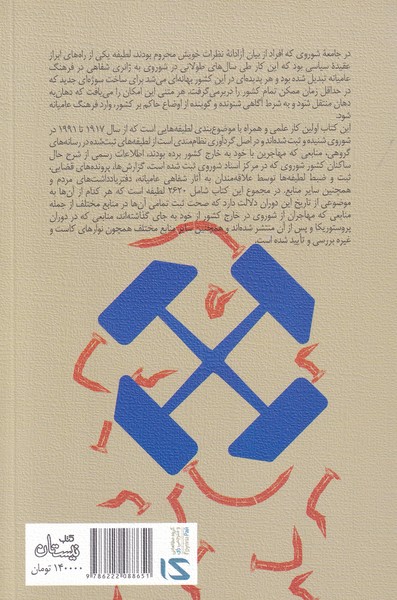 در جامعهٔ شوروی که افراد از بیان آزادانهٔ نظرات خویش محروم بودند، لطیفه یکی از راه‌های ابراز
عقیدهٔ سیاسی بود که این کار طی سال‌های طولانی در شوروی به ژانری شفاهی در فرهنگ
عامیانه تبدیل شده بود و هر پدیده‌ای در این کشور بهانه‌ای می‌شد برای ساخت سوژه‌ای جدید که
در حداقل زمان ممکن تمام کشور را دربرمی‌گرفت. هر متنی این امکان را می‌یافت که دهان‌به
دهان منتقل شود و به شرط آگاهی شنونده و گوینده از اوضاع حاکم بر کشور، وارد فرهنگ عامیانه
شود.
این کتاب اولین کار علمی و همراه با موضوع‌بندی لطیفه‌هایی است که از سال ۱۹۱۷ تا ۱۹۹۱ در
شوروی شنیده و ثبت شده‌اند و در اصل گردآوری نظام‌مندی است از لطیفه‌های ثبت‌شده در رسانه‌های
گروهی، منابعی که مهاجرین با خود به خارج کشور برده بودند، اطلاعات رسمی از شرح حال
ساکنان کشور شوروی که در مرکز اسناد شوروی ثبت شده است، گزارش‌ها، پرونده‌های قضایی،
ثبت و ضبط لطیفه‌ها توسط علاقه‌مندان به آثار شفاهی عامیانه، دفتریادداشت‌های مردم و
همچنین سایر منابع. در مجموع این کتاب شامل ۲۶۲۰ لطیفه است که هر کدام از آن‌ها به
موضوعی از تاریخ این دوران دلالت دارد که صحت ثبت تمامی آن‌ها در منابع مختلف از جمله
منابعی که مهاجران از شوروی در خارج کشور از خود به جای گذاشته‌اند، منابعی که در دوران
پروستوریکا و پس از آن منتشر شده‌اند و همچنین سایر منابع مختلف همچون نوارهای کاست و
غیره بررسی و تأیید شده است.
کتاب
نیستان
۱۴۰۰۰۰ تومان
9 786222 088651